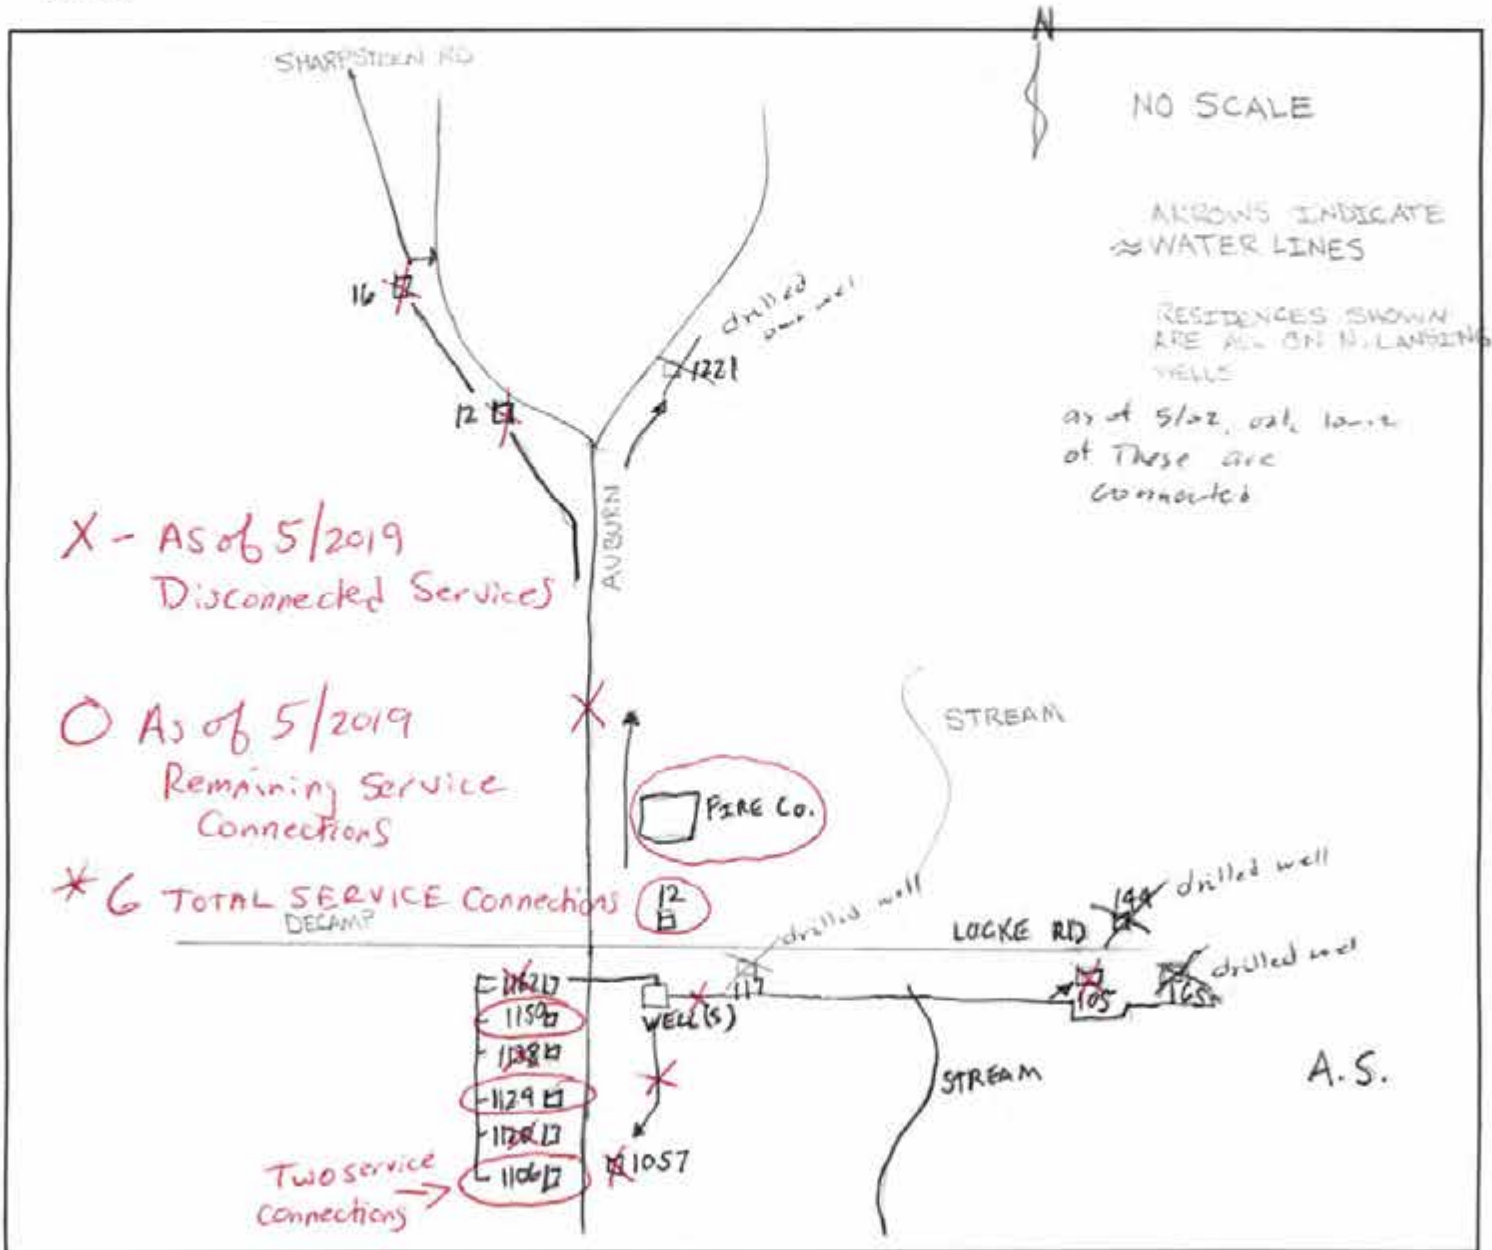 N
SHARPSTEEN RD
NO SCALE
ARROWS INDICATE
≈ WATER LINES
RESIDENCES SHOWN
ARE ALL ON N. LANSING
WELLS
as of 5/02,
of These are
connected
16
drilled
well
1221
12
AUBURN
X - As of 5/2019
Disconnected Services
O As of 5/2019
Remaining Service
Connections
* 6 TOTAL SERVICE Connections
STREAM
FIRE Co.
12
DECAMP
drilled well
LOCKE RD
144
drilled well
1162
1150
1138
1129
1106
WELL(S)
117
105
165
drilled well
STREAM
A.S.
1057
Two service
connections